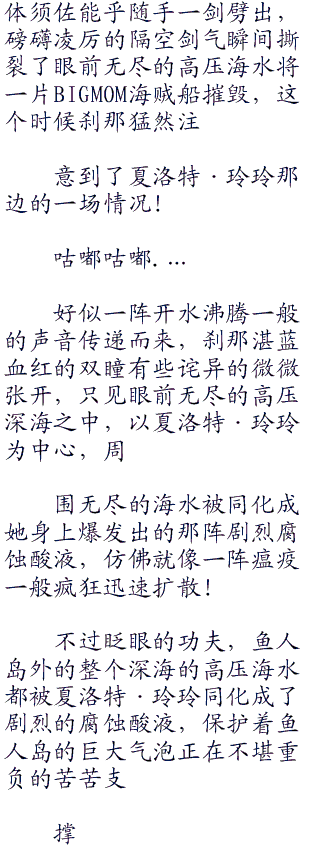 体须佐能乎随手一剑劈出，
磅礴凌厉的隔空剑气瞬间撕
裂了眼前无尽的高压海水将
一片BIGMOM海贼船摧毁，这
个时候刹那猛然注
意到了夏洛特·玲玲那
边的一场情况！
咕嘟咕嘟．…
好似一阵开水沸腾一般
的声音传递而来，刹那湛蓝
血红的双瞳有些诧异的微微
张开，只见眼前无尽的高压
深海之中，以夏洛特·玲玲
为中心，周
围无尽的海水被同化成
她身上爆发出的那阵剧烈腐
蚀酸液，仿佛就像一阵瘟疫
一般疯狂迅速扩散！
不过眨眼的功夫，鱼人
岛外的整个深海的高压海水
都被夏洛特·玲玲同化成了
剧烈的腐蚀酸液，保护着鱼
人岛的巨大气泡正在不堪重
负的苦苦支
撑